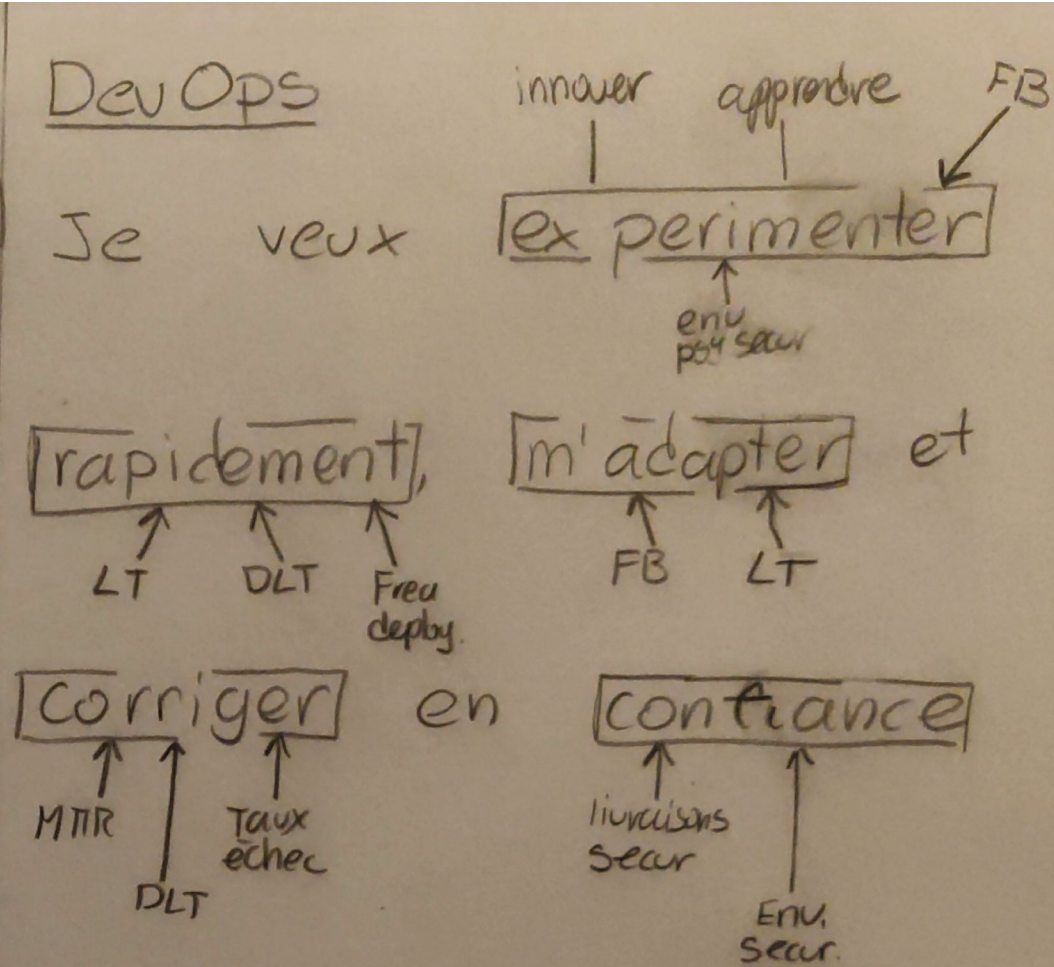 DevOps
innover apprendre FB
Je veux experimenter
env
psy secur
rapidement, m'adapter et
LT DLT Freq FB LT
deploy.
corriger en confiance
MTTR Taux livraisons
échec secur
DLT Env.
secur.